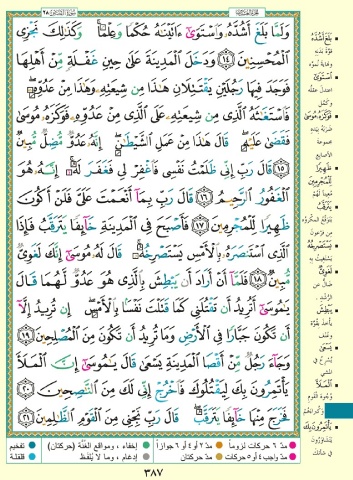 وَلَمَّا بَلَغَ أَشُدَّهُۥ وَٱسْتَوَىٰٓ ءَاتَيْنَٰهُ حُكْمًا وَعِلْمًا ۚ وَكَذَٰلِكَ نَجْزِى
ٱلْمُحْسِنِينَ ١٤ وَدَخَلَ ٱلْمَدِينَةَ عَلَىٰ حِينِ غَفْلَةٍ مِّنْ أَهْلِهَا
فَوَجَدَ فِيهَا رَجُلَيْنِ يَقْتَتِلَانِ هَٰذَا مِن شِيعَتِهِۦ وَهَٰذَا مِنْ عَدُوِّهِۦ ۖ
فَٱسْتَغَٰثَهُ ٱلَّذِى مِن شِيعَتِهِۦ عَلَى ٱلَّذِى مِنْ عَدُوِّهِۦ فَوَكَزَهُۥ مُوسَىٰ
فَقَضَىٰ عَلَيْهِ ۖ قَالَ هَٰذَا مِنْ عَمَلِ ٱلشَّيْطَٰنِ ۖ إِنَّهُۥ عَدُوٌّ مُّضِلٌّ مُّبِينٌ
١٥ قَالَ رَبِّ إِنِّى ظَلَمْتُ نَفْسِى فَٱغْفِرْ لِى فَغَفَرَ لَهُۥٓ ۚ إِنَّهُۥ هُوَ
ٱلْغَفُورُ ٱلرَّحِيمُ ١٦ قَالَ رَبِّ بِمَآ أَنْعَمْتَ عَلَىَّ فَلَنْ أَكُونَ
ظَهِيرًا لِّلْمُجْرِمِينَ ١٧ فَأَصْبَحَ فِى ٱلْمَدِينَةِ خَآئِفًا يَتَرَقَّبُ فَإِذَا
ٱلَّذِى ٱسْتَنصَرَهُۥ بِٱلْأَمْسِ يَسْتَصْرِخُهُۥ ۚ قَالَ لَهُۥ مُوسَىٰٓ إِنَّكَ لَغَوِىٌّ
مُّبِينٌ ١٨ فَلَمَّآ أَنْ أَرَادَ أَن يَبْطِشَ بِٱلَّذِى هُوَ عَدُوٌّ لَّهُمَا قَالَ
يَٰمُوسَىٰٓ أَتُرِيدُ أَن تَقْتُلَنِى كَمَا قَتَلْتَ نَفْسًۢا بِٱلْأَمْسِ ۖ إِن تُرِيدُ إِلَّآ
أَن تَكُونَ جَبَّارًا فِى ٱلْأَرْضِ وَمَا تُرِيدُ أَن تَكُونَ مِنَ ٱلْمُصْلِحِينَ ١٩
وَجَآءَ رَجُلٌ مِّنْ أَقْصَا ٱلْمَدِينَةِ يَسْعَىٰ قَالَ يَٰمُوسَىٰٓ إِنَّ ٱلْمَلَأَ
يَأْتَمِرُونَ بِكَ لِيَقْتُلُوكَ فَٱخْرُجْ إِنِّى لَكَ مِنَ ٱلنَّٰصِحِينَ ٢٠
فَخَرَجَ مِنْهَا خَآئِفًا يَتَرَقَّبُ ۖ قَالَ رَبِّ نَجِّنِى مِنَ ٱلْقَوْمِ ٱلظَّٰلِمِينَ ٢١
بَلَغَ أَشُدَّهُ
قوّة بدنه
ونهاية نموّه
اسْتَوَىٰ
اعتدل عقله
وكمل
فَوَكَزَهُ مُوسَىٰ
ضربه بيده
مجموعة
الأصابع
ظَهِيرًا
لِلْمُجْرِمِينَ
معينًا لهم
يَتَرَقَّبُ
يتوقّع المكروه
من فرعون
يَسْتَصْرِخُهُ
يستغيث به
لَغَوِيٌّ
ضالّ عن
الرّشد
يَبْطِشَ
يأخذ بقوّة
وعنف
يَسْعَىٰ
يسرع في
المشي
الْمَلَأَ
وجوه القوم
وكبراءهم
يَأْتَمِرُونَ بِكَ
يتشاورون
في شأنك
مدّ ٦ حركات لزوماً
مدّ ٢ أو ٤ أو ٦ جوازاً
إخفاء، ومواقع الغُنَّة (حركتان)
تفخيم
مدّ واجب ٤ أو ٥ حركات
مدّ حركتان
إدغام، وما لا يُلفَظ
قلقلة
٣٨٧